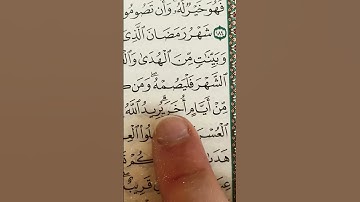 فَهُوَ خَيْرٌ لَّهُۥ وَأَن تَصُومُوا
١٨٤ شَهْرُ رَمَضَانَ ٱلَّذِي
وَبَيِّنَٰتٍ مِّنَ ٱلْهُدَىٰ وَٱلْ
ٱلشَّهْرَ فَلْيَصُمْهُ وَمَن كَ
مِّنْ أَيَّامٍ أُخَرَ يُرِيدُ ٱللَّهُ
ٱلْعُسْ
هَدَ
قَرِيبٌ